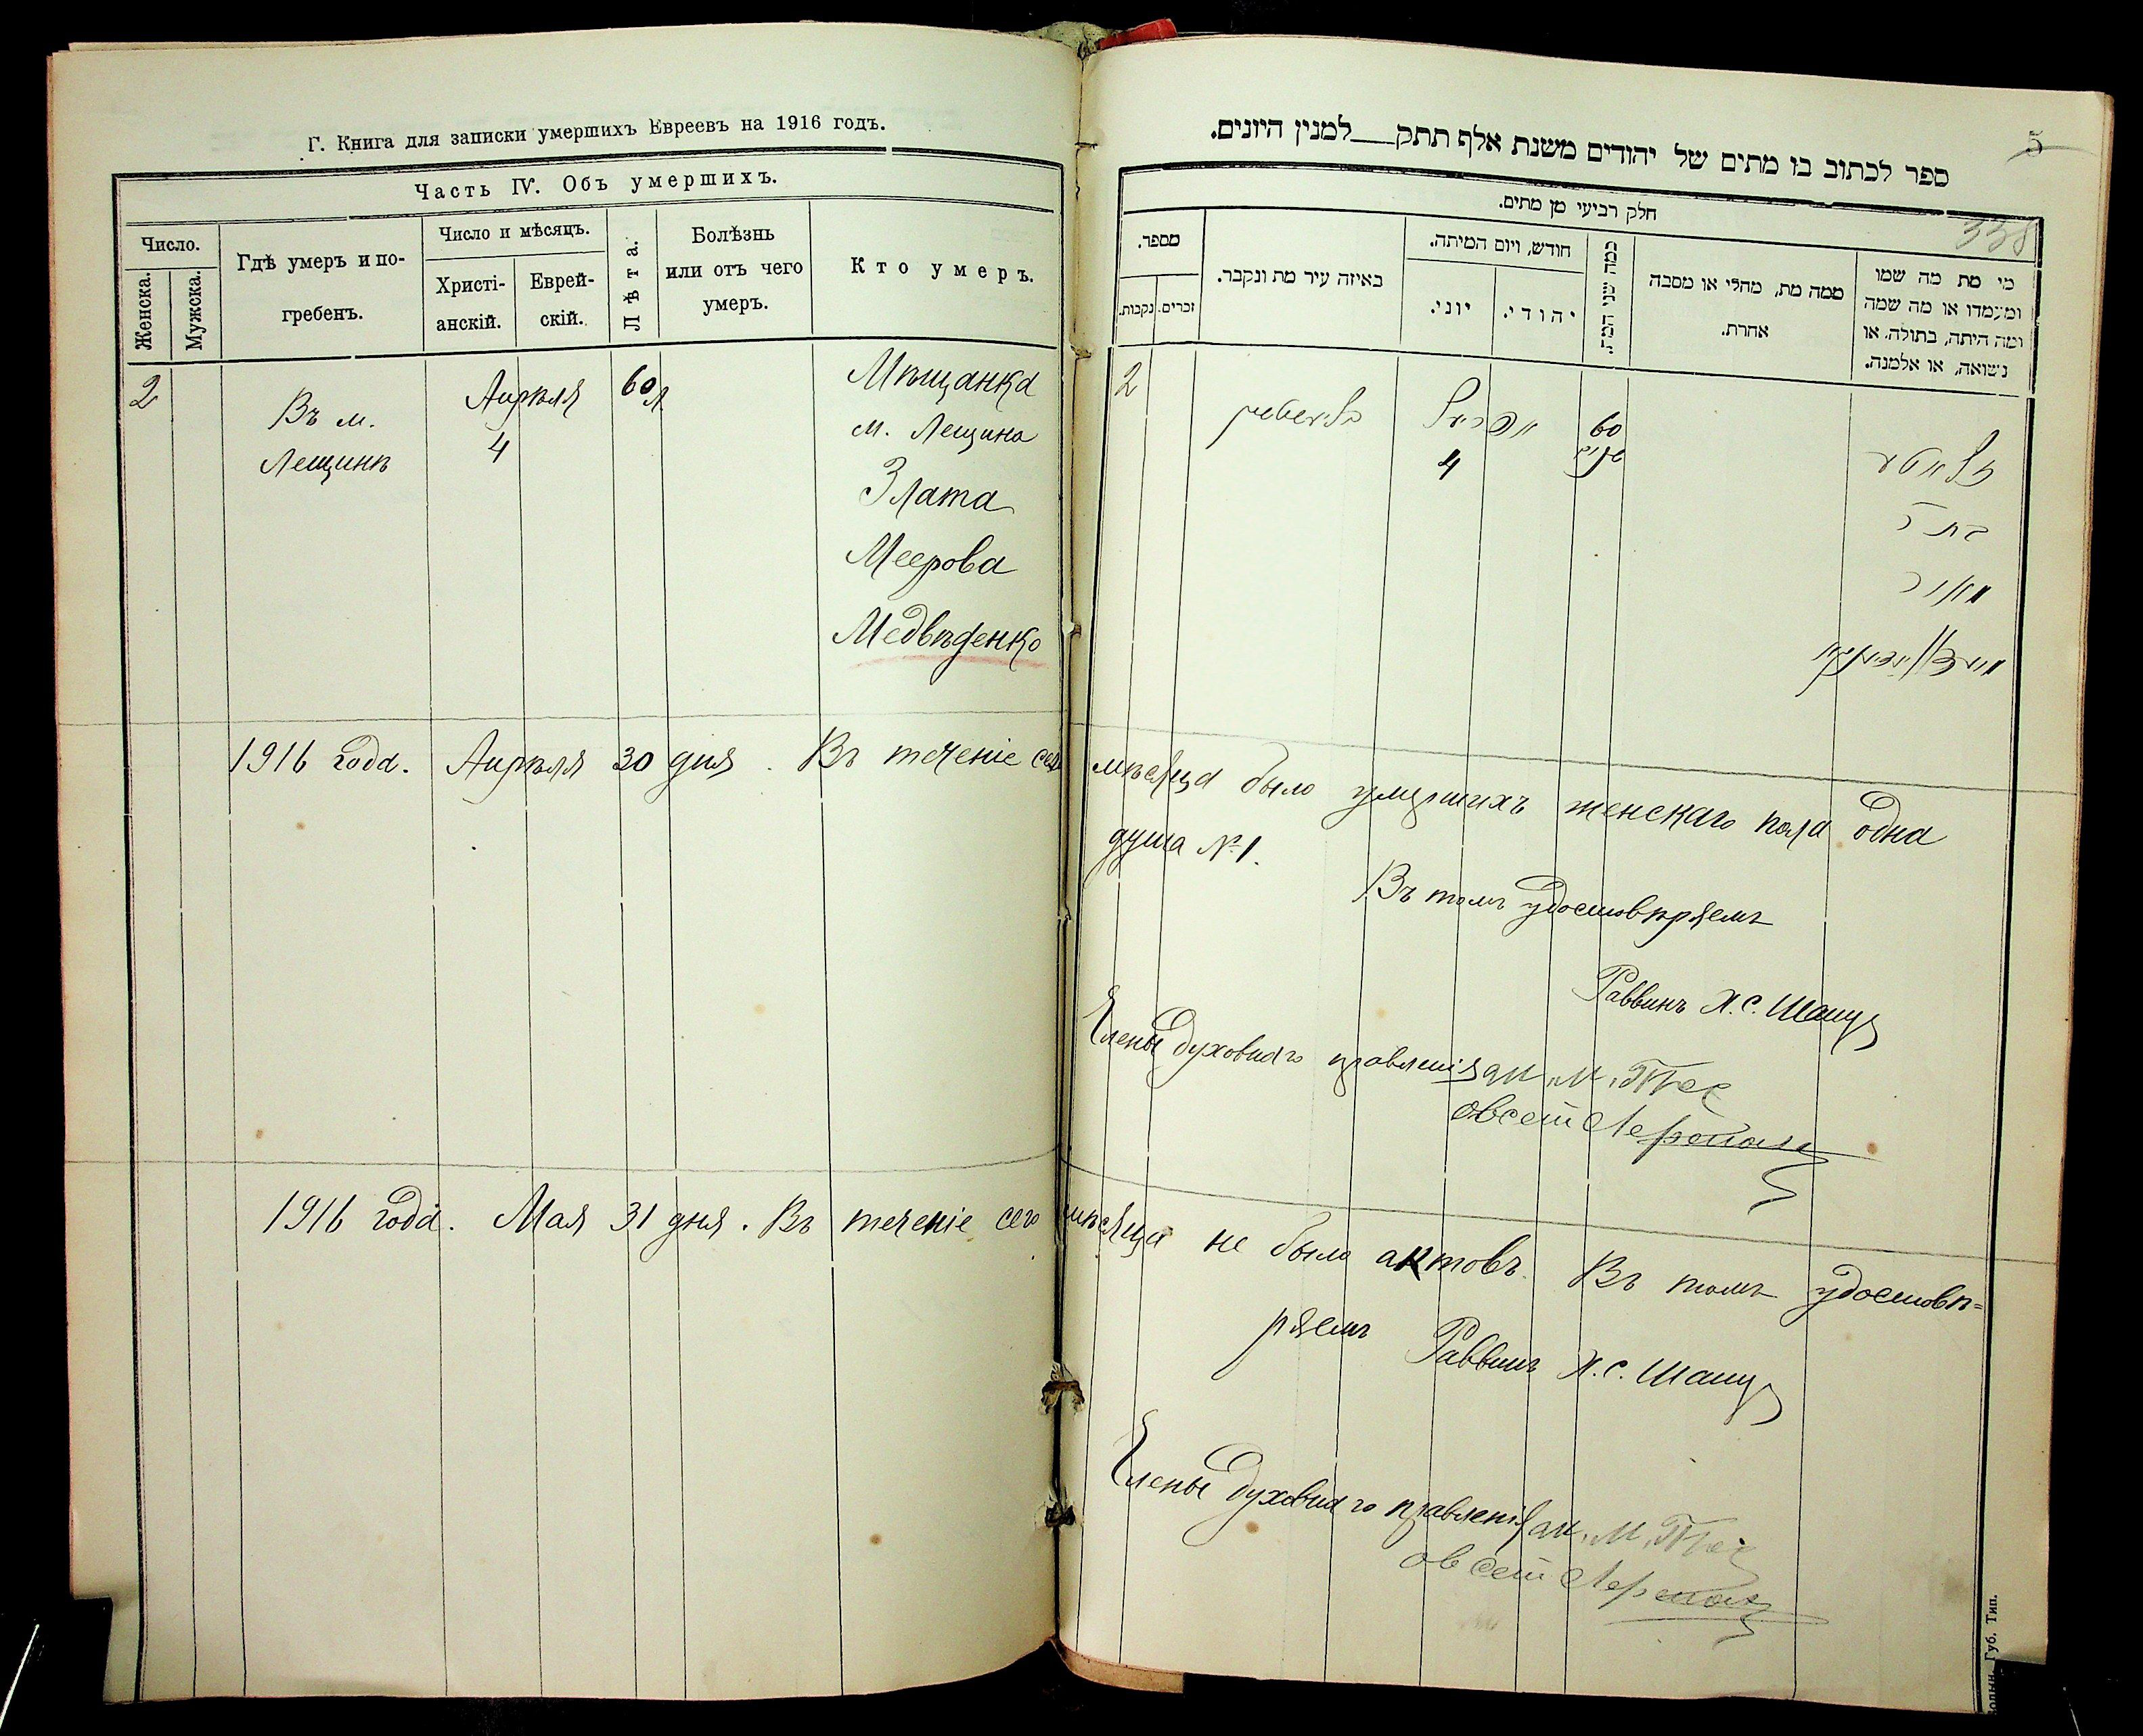 Г. Книга для записки умершихъ Евреевъ на 1916 годъ.
Часть IV. Объ умершихъ.
Число.
Женска.
Мужска.
Гдѣ умеръ и по-
гребенъ.
Число и мѣсяцъ.
Христі-
анскій.
Еврей-
скій.
Лѣта.
Болѣзнь
или отъ чего
умеръ.
Кто умеръ.
2
Въ м.
Лещинѣ
Апрѣля
4
60 л
Мѣщанка
м. Лещина
Злата
Меерова
Медвѣденко
5
338
ספר לכתוב בו מתים של יהודים משנת אלף תתק___למנין היונים.
חלק רביעי מן מתים.
מספר.
נקבות.
זכרים.
באיזה עיר מת ונקבר.
חודש, ויום המיתה.
יוני.
יהודי.
כמה שני המת.
ממה מת, מחלי או מסבה
אחרת.
מי מת מה שמו
ומעמדו או מה שמה
ומה היתה, בתולה, או
נשואה, או אלמנה.
2
אפריל
4
60
זלאטע
בת ר
מאיר
1916 года. Апрѣля 30 дня. Въ теченіе сего мѣсяца было умершихъ женскаго пола одна
душа № 1.
Въ томъ удостовѣряемъ
Раввинъ Х. С. Шапиро
Члены духовнаго правленія
1916 года. Мая 31 дня. Въ теченіе сего мѣсяца не было актовъ. Въ томъ удостовѣ=
ряемъ Раввинъ Х. С. Шапиро
Члены духовнаго правленія
Губ. Тип.